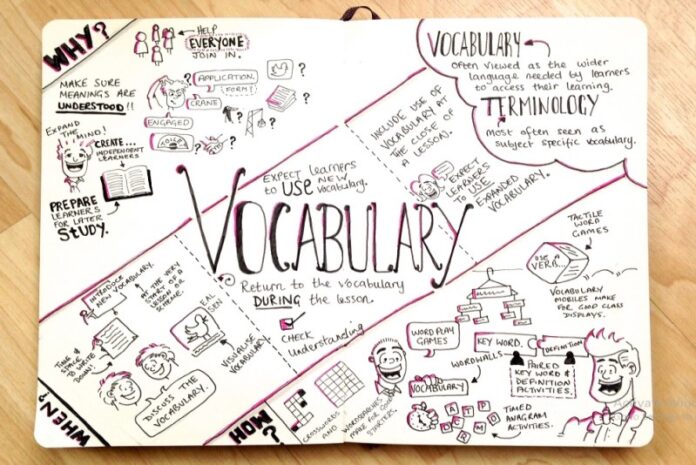 WHY?
HELP
EVERYONE
JOIN IN.
MAKE SURE
MEANINGS ARE
UNDERSTOOD!!
APPLICATION
FORM?
?
?
CRANE
?
?
?
ENGAGED
?
?
?
EXPAND
THE MIND!
CREATE...
INDEPENDENT
LEARNERS
PREPARE
LEARNERS
FOR LATER
STUDY.
VOCABULARY
Often viewed as the wider
language needed by learners
to access their learning.
TERMINOLOGY
Most often seen as
subject specific vocabulary.
INCLUDE USE OF
VOCABULARY AT
THE CLOSE OF
A LESSON.
EXPECT
LEARNERS
TO USE
EXPANDED
VOCABULARY.
EXPECT learners
to USE NEW
Vocabulary.
VOCABULARY
Return to the vocabulary
DURING the lesson.
CHECK
understanding
INTRODUCE
NEW VOCABULARY.
AT THE VERY
START OF A
LESSON OR
SCHEME.
TIME &
SPACE
TO WRITE
DOWN!
VISUALISE
VOCABULARY.
DISCUSS THE
VOCABULARY.
WHEN?
HOW?
CROSSWORDS
AND
WORDSEARCHES
MAKE FOR GOOD
STARTERS.
TACTILE
WORD
GAMES
USE A
VERB..
VOCABULARY
MOBILES MAKE
FOR GOOD CLASS
DISPLAYS.
WORDPLAY
GAMES
KEY WORD.
DEFINITION
WORDWALLS
VOCABULARY
PAIRED
KEY WORD &
DEFINITION
ACTIVITIES.
A T P
D E R M O
TIMED
ANAGRAM
ACTIVITIES.